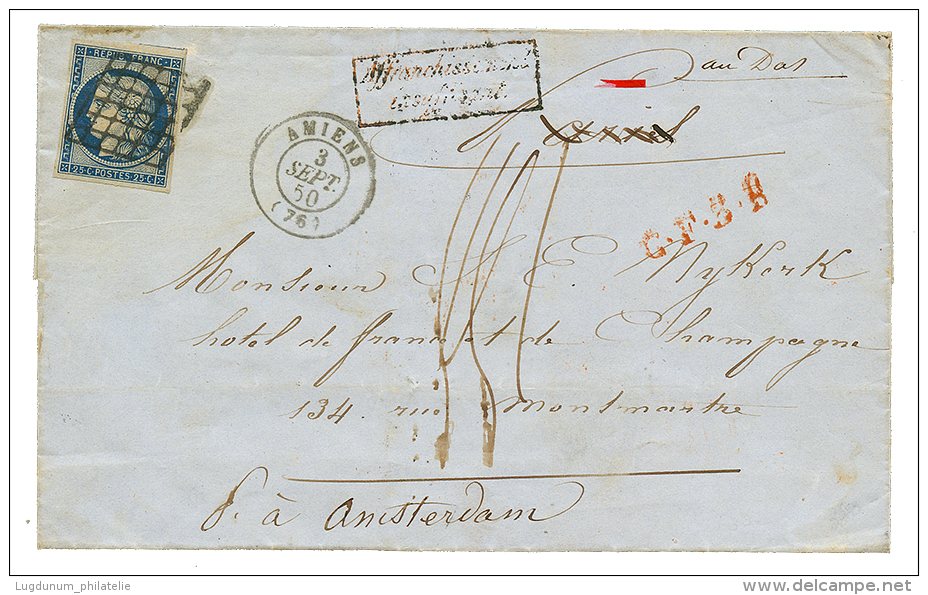 REPUB. FRANC.
25·C·POSTES·25·C·
Affranchissement
insuffisant
AMIENS
3
SEPT.
50
(76)
au Dos
C.F.3.R
Monsieur E. Nykerk
hotel de france et de Champagne
134. rue Montmartre
P. à Amsterdam
Lugdunum_philatelie
delcampe.net